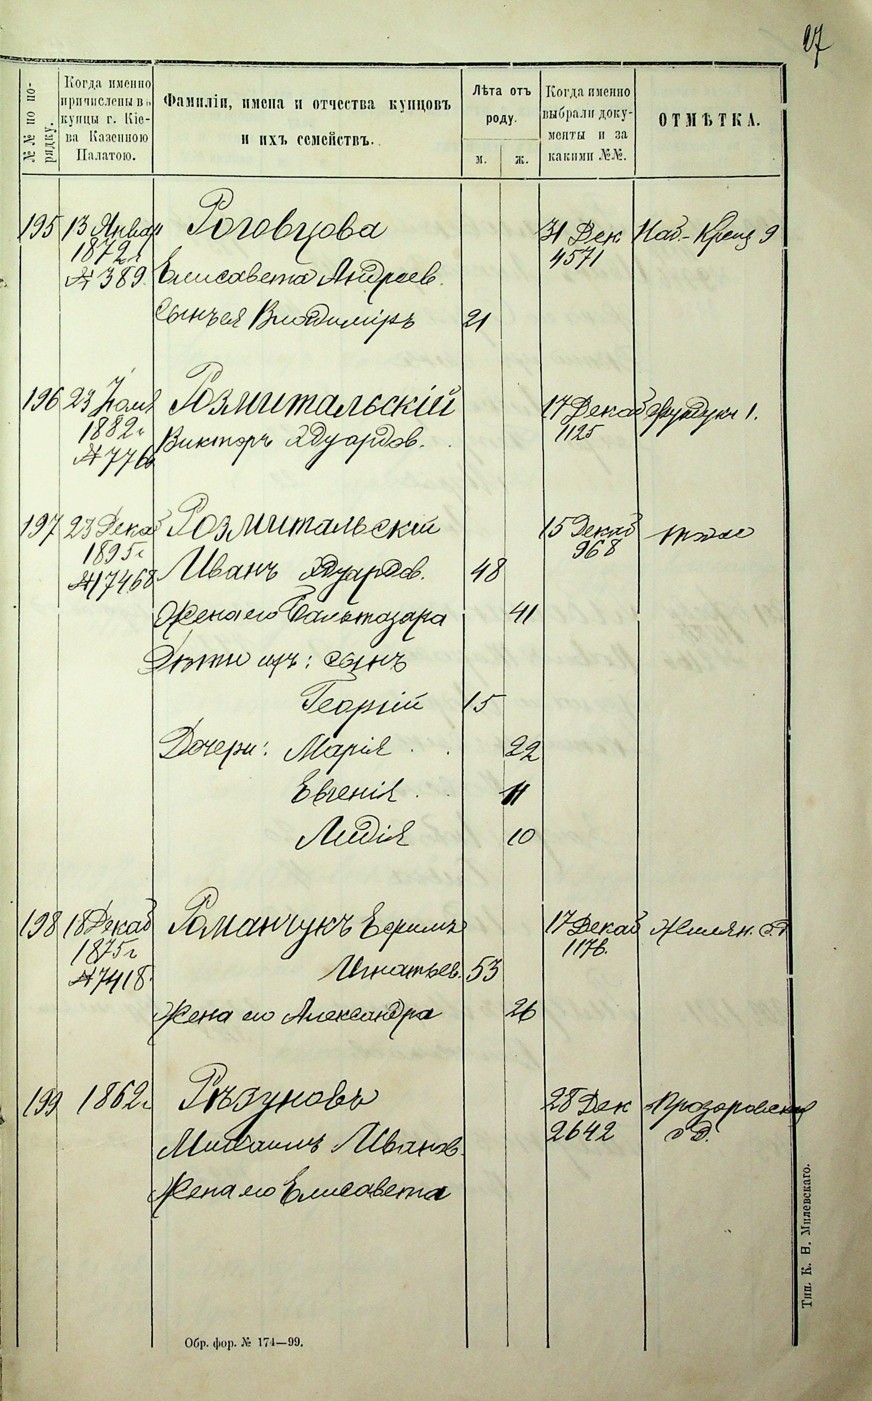 27
№№ по порядку.
Когда именно
причислены въ
купцы г. Кіе-
ва Казенною
Палатою.
Фамиліи, имена и отчества купцовъ
и ихъ семействъ.
Лѣта отъ
роду.
м. ж.
Когда именно
выбрали доку-
менты и за
какими №№.
ОТМѢТКА.
195 13 Январ Роговцова 31 Дек Наб-Крещ 9
1872г 4571
№ 389 Елисавета Андреев.
Сынъ ея Владиміръ 21
196 23 Розмитальскій 17 Декаб Фундукл 1.
1882г 1125
№ 7766 Викторъ Эдуардов.
197 23 Декаб Розмитальскій 15 Декаб тоже
1895г 968
№ 17468 Иванъ Эдуардов. 48
Жена его Бальтазара 41
Дѣти ихъ: сынъ
Георгій 15
Дочери: Марія 22
Евгенія 11
Лидія 10
198 18 Декаб Романчукъ Ефимъ 17 Декаб Жилян. с.д
1875г 1176.
№ 7418 Игнатьев. 53
Жена его Александра 26
199 1862г Рѣзуновъ 28 Дек Прозоровская
Михаилъ Иванов. 2642 с д.
Жена его Елисавета
Обр. фор. № 174—99.
Тип. К. Н. Милевскаго.